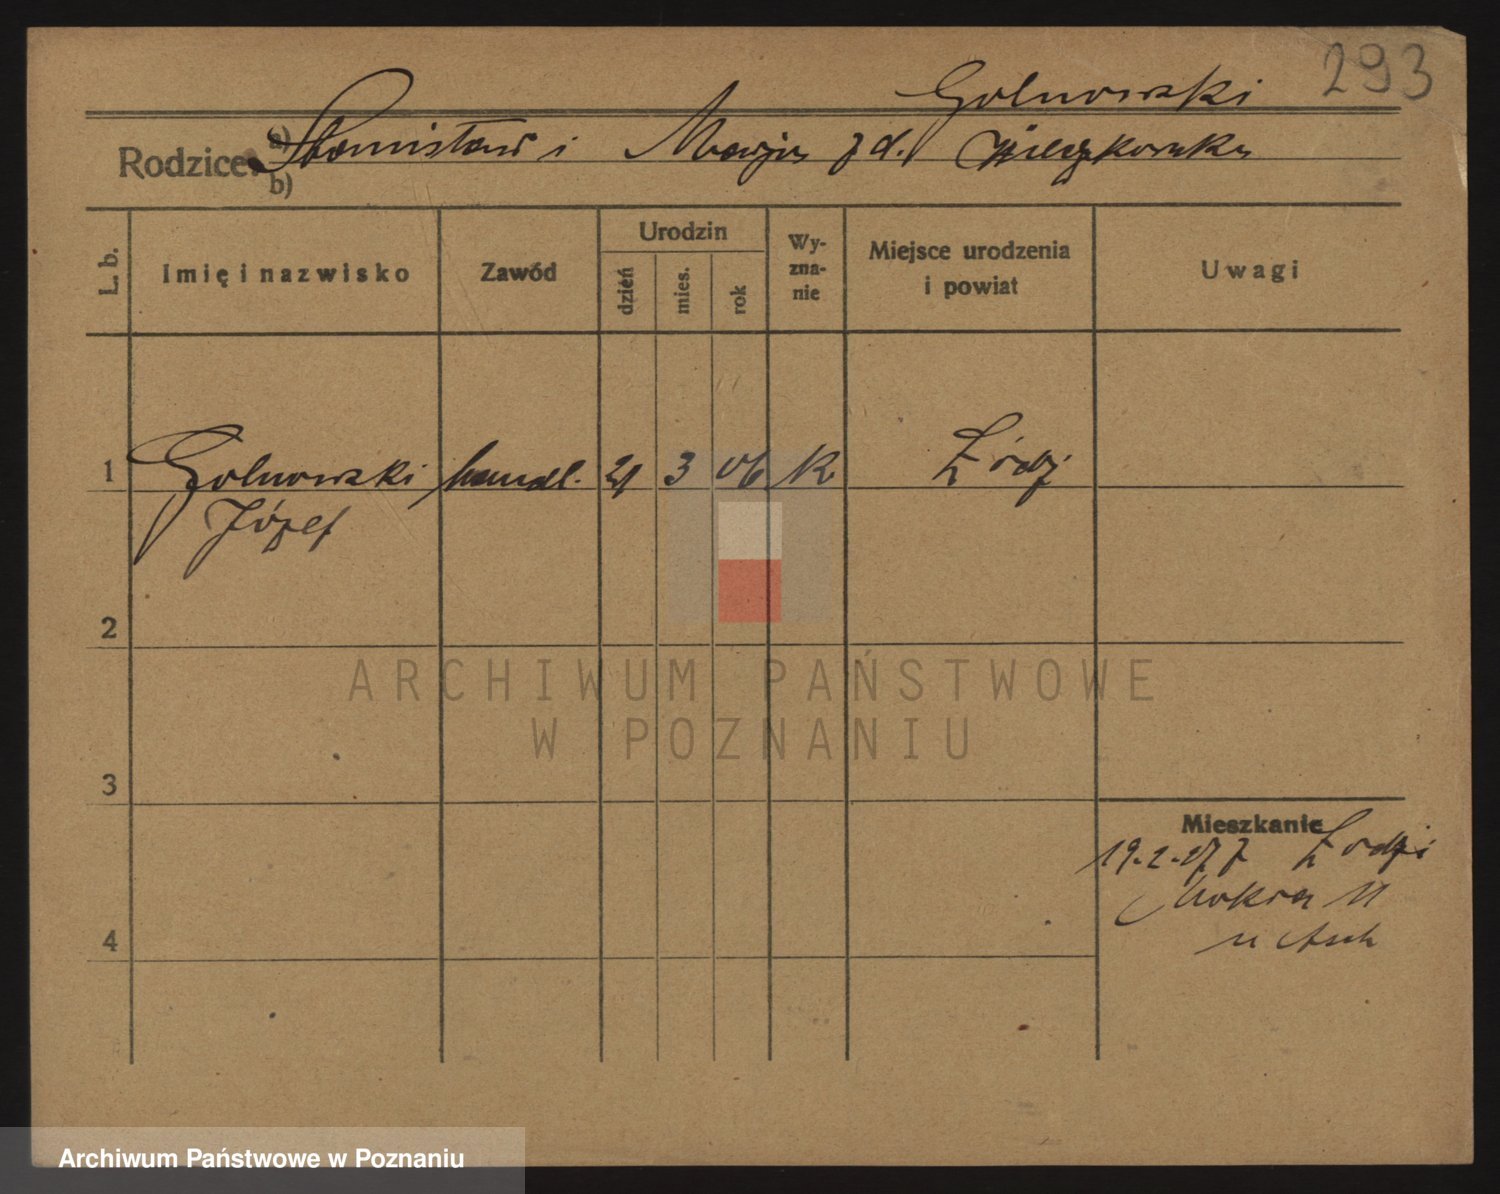 Golnowski 293
Rodzice: a) Stanisław i Marja z d.
b)
L. b.
Imię i nazwisko
Zawód
Urodzin
dzień
mies.
rok
Wy-
zna-
nie
Miejsce urodzenia
i powiat
Uwagi
1 Golnowski handl. 21 3 06 k Łódź
Józef
2
ARCHIWUM PAŃSTWOWE
W POZNANIU
3
Mieszkanie
19.2.27 z Łodzi
Mokra 11
u
4
Archiwum Państwowe w Poznaniu